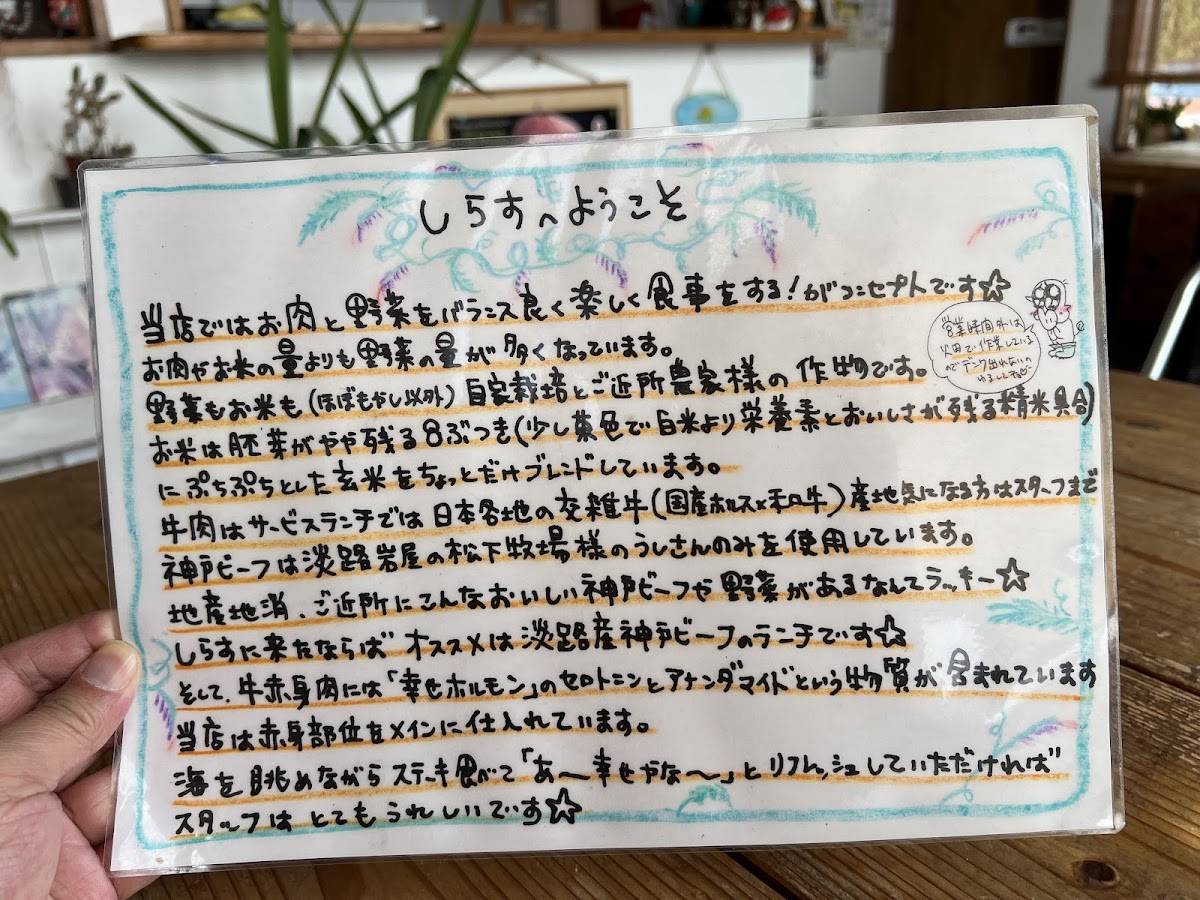 しらすへようこそ
当店ではお肉と野菜をバランス良く楽しく食事をする!がコンセプトです☆
お肉やお米の量よりも野菜の量が多くなっています。
野菜もお米も(ほぼもやし以外)自家栽培とご近所農家様の作物です。
営業時間外は
畑で作業している
のでデンワ出れない
お米は胚芽がやや残る8ぶつき(少し茶色で白米より栄養素とおいしさが残る精米具合)
にぷちぷちとした玄米をちょっとだけブレンドしています。
牛肉はサービスランチでは日本各地の交雑牛(国産ホルス×和牛)産地気になる方はスタッフまで
神戸ビーフは淡路岩屋の松下牧場様のうしさんのみを使用しています。
地産地消、ご近所にこんなおいしい神戸ビーフや野菜があるなんてラッキー☆
しらすに来たならばオススメは淡路産神戸ビーフのランチです☆
そして、牛赤身肉には「幸せホルモン」のセロトニンとアナンダマイドという物質が含まれています
当店は赤身部位をメインに仕入れています。
海を眺めながらステーキ食べて「あ〜幸せやな〜」とリフレッシュしていただければ
スタッフはとてもうれしいです☆